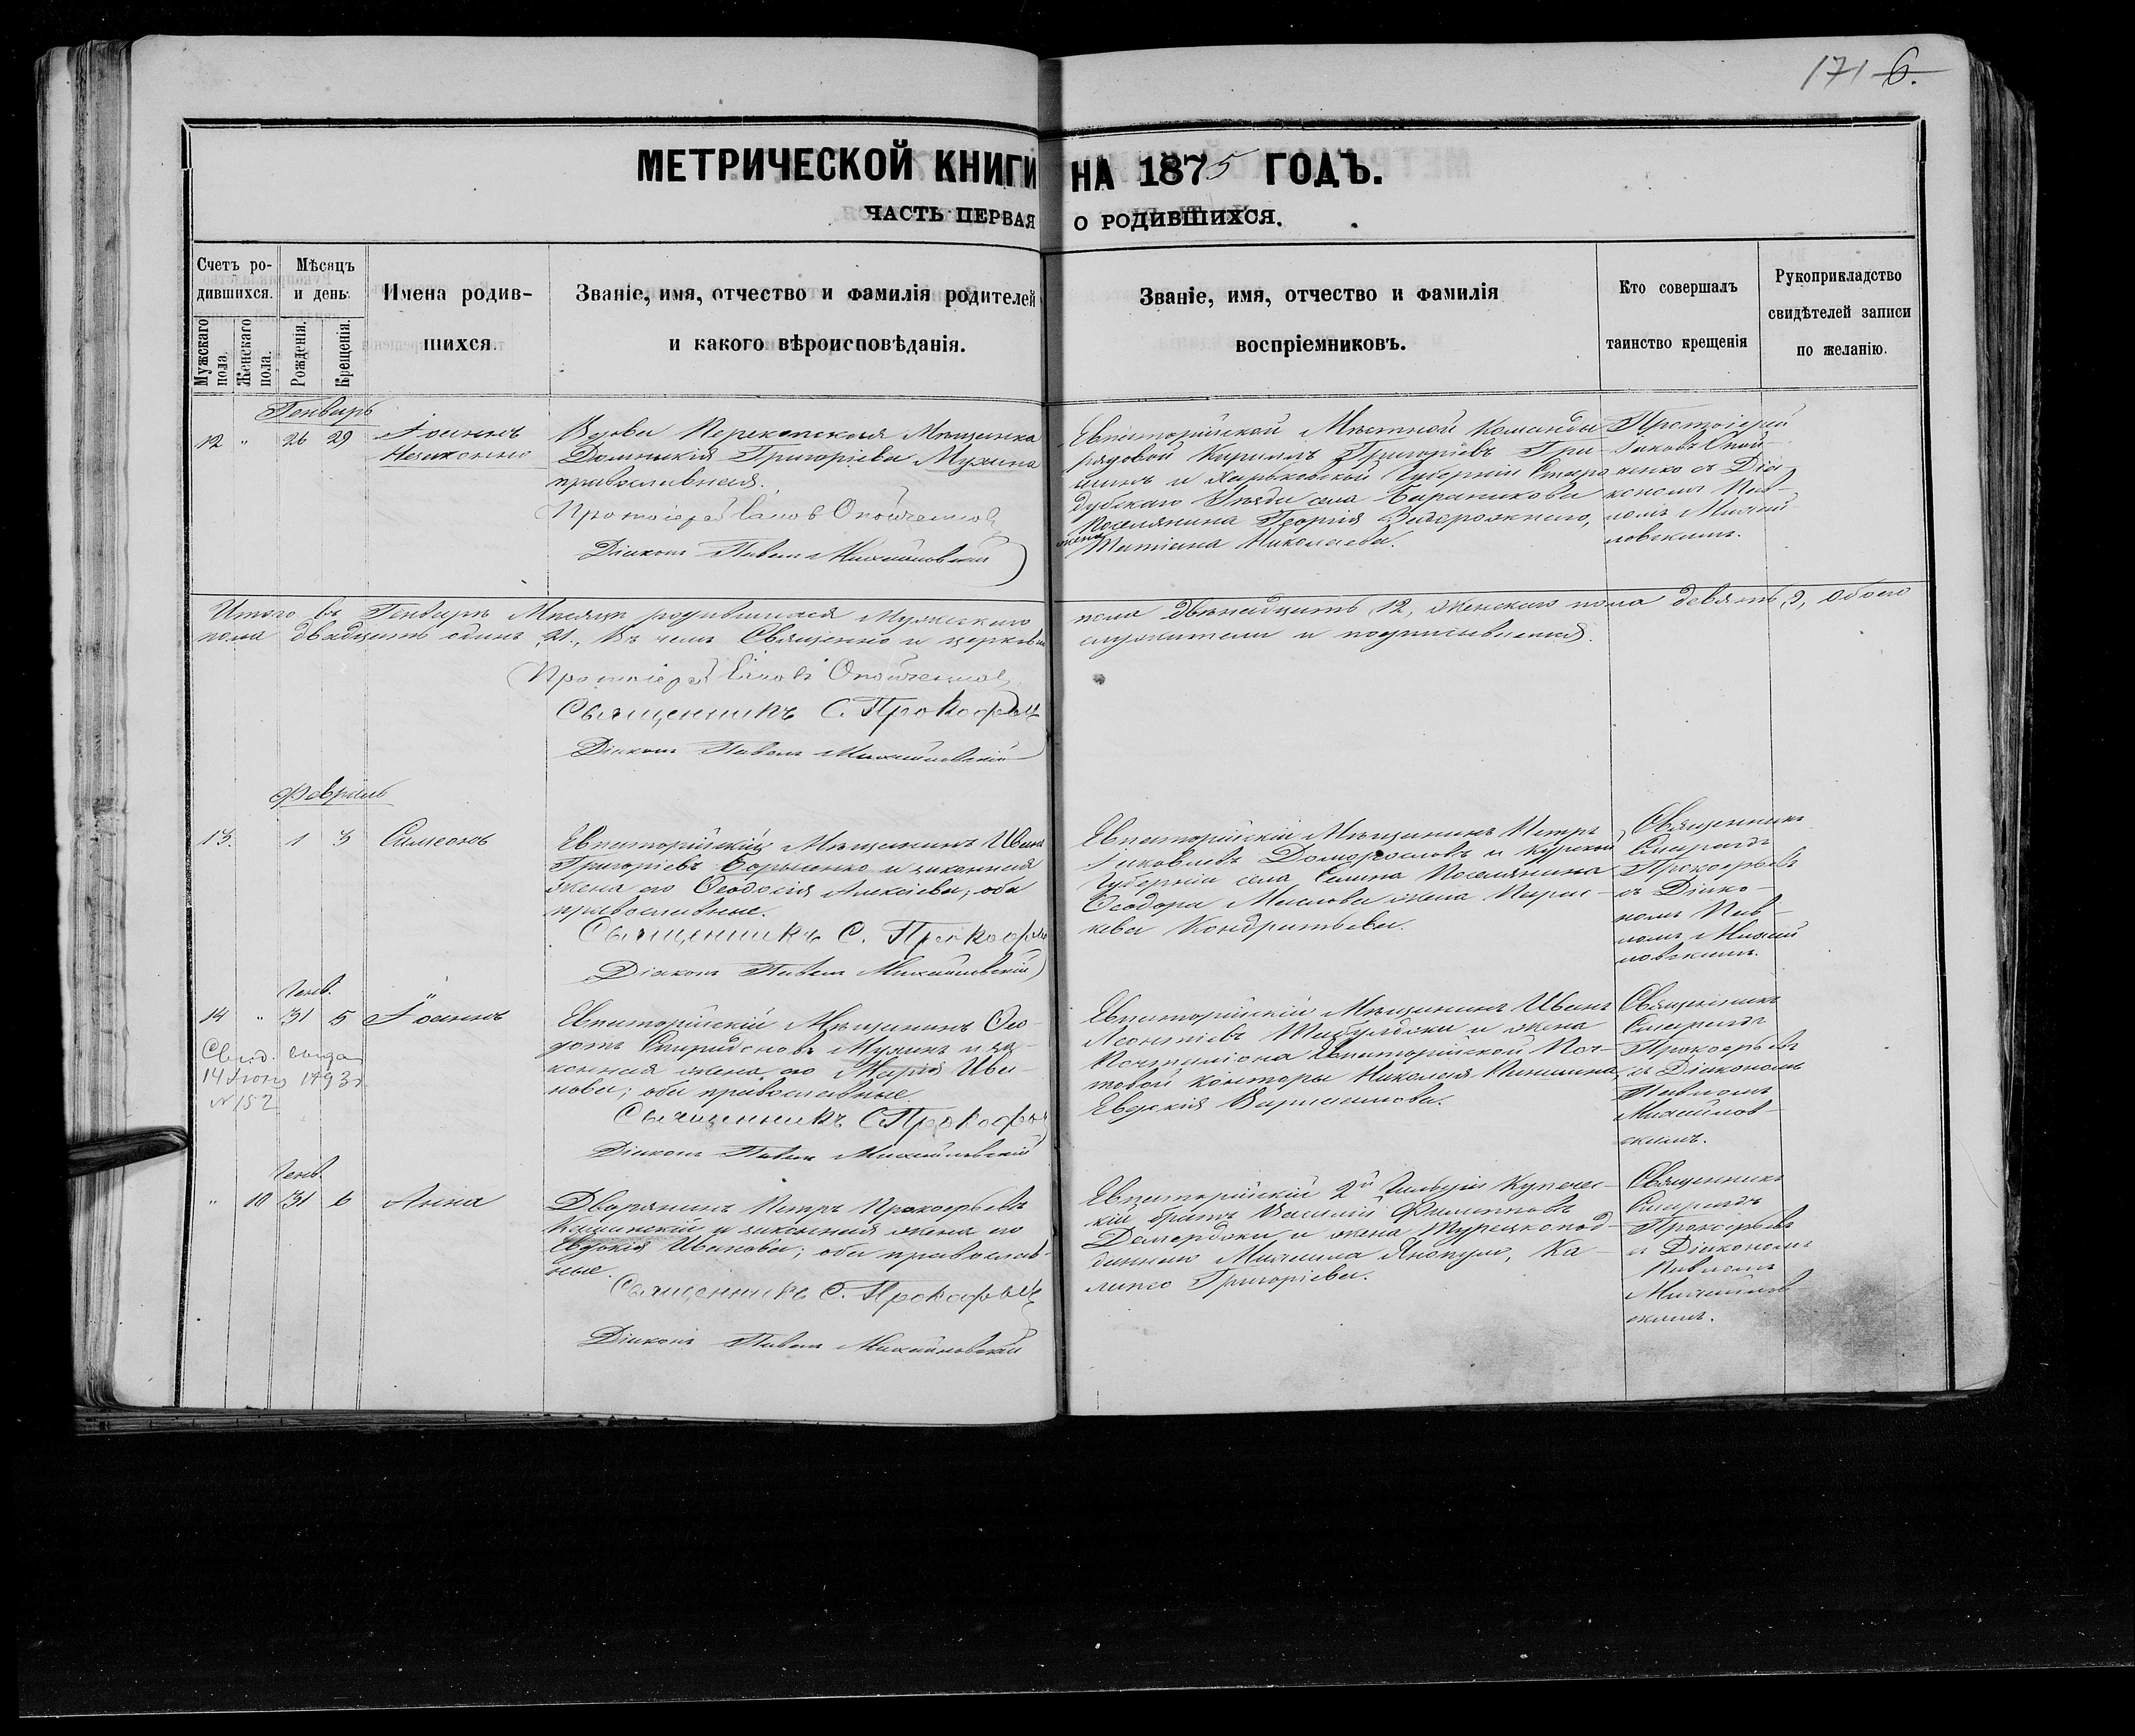 171 6.
МЕТРИЧЕСКОЙ КНИГИ НА 1875 ГОДЪ.
ЧАСТЬ ПЕРВАЯ О РОДИВШИХСЯ.
Счетъ ро-
дившихся.
Мужскаго пола.
Женскаго пола.
Мѣсяцъ
и день.
Рожденія.
Крещенія.
Имена родив-
шихся.
Званіе, имя, отчество и фамилія родителей
и какого вѣроисповѣданія.
Званіе, имя, отчество и фамилія
воспріемниковъ.
Кто совершалъ
таинство крещенія
Рукоприкладство
свидѣтелей записи
по желанію.
Генварь
12 " 26 29
Іоаннъ
Незаконно
Вдова Перекопская Мѣщанка
Домникія Григоріева Мухина
православная.
Протоіерей Іаковъ
Діаконъ Павелъ Михайловскій
Евпаторійской Мѣстной Команды
рядовой Кириллъ Григоріевъ Гри-
шинъ и Харьковской Губерніи Старо
Уѣзда села Бараникова
Поселянина Георгія Задорожнаго,
жена
Татіана Николаева.
Протоіерей
Іаковъ Опой-
ченко съ Діа-
кономъ Пав-
ломъ Михай
ловскимъ.
Итого въ Генварѣ Мѣсяцѣ родившихся Мужескаго пола двѣнадцать, 12, женскаго пола девять, 9, обоего
пола двадцать одинъ, 21., Въ чемъ Священно и церковно служители и подписываемся.
Протоіерей Іаковъ
Священникъ С. Прокофьевъ
Діаконъ Павелъ Михайловскій
Февраль
13. 1 3
Симеонъ
Евпаторійскій Мѣщанинъ Иванъ
Григоріевъ Борисенко и законная
жена его Ѳеодосія Алексіева, оба
православные.
Священникъ С. Прокофьевъ
Діаконъ Павелъ Михайловскій
Евпаторійскій Мѣщанинъ Петръ
Іаковлевъ Доморословъ и Курской
Губерніи села Селина Поселянина
Ѳеодора Маслова жена Парас-
кева Кондратьева.
Священникъ
Смарагдъ
Прокофьевъ
съ Діако-
номъ Пав-
ломъ Михай
ловскимъ.
Генв.
14 " 31 5
Іоаннъ
Свид. выдан
14 1893 г.
№ 152
Евпаторійскій Мѣщанинъ Ѳео-
дотъ Спиридоновъ Мухинъ и за-
конная жена его Марія Ива-
нова; оба православные.
Священникъ С. Прокофьевъ
Діаконъ Павелъ Михайловскій
Евпаторійскій Мѣщанинъ Иванъ
Леонтіевъ и жена
Почталіона Евпаторійской Поч-
товой Конторы Николая
Евдокія Варлаамова.
Священникъ
Смарагдъ
Прокофьевъ
съ Діакономъ
Павломъ
Михайлов-
скимъ.
Генв.
" 10 31 6
Анна
Дворянинъ Петръ Прокофьевъ
и законная жена его
Евдокія Иванова; оба православ-
ные.
Священникъ С. Прокофьевъ
Діаконъ Павелъ Михайловскій
Евпаторійскій 2й Гильдіи Купечес-
кій братъ Василій Филипповъ
Демерджи и жена Турецкопод-
даннаго Михаила Янопуло, Ка-
липсо Григоріева.
Священникъ
Смарагдъ
Прокофьевъ
съ Діакономъ
Павломъ
Михайлов
скимъ.